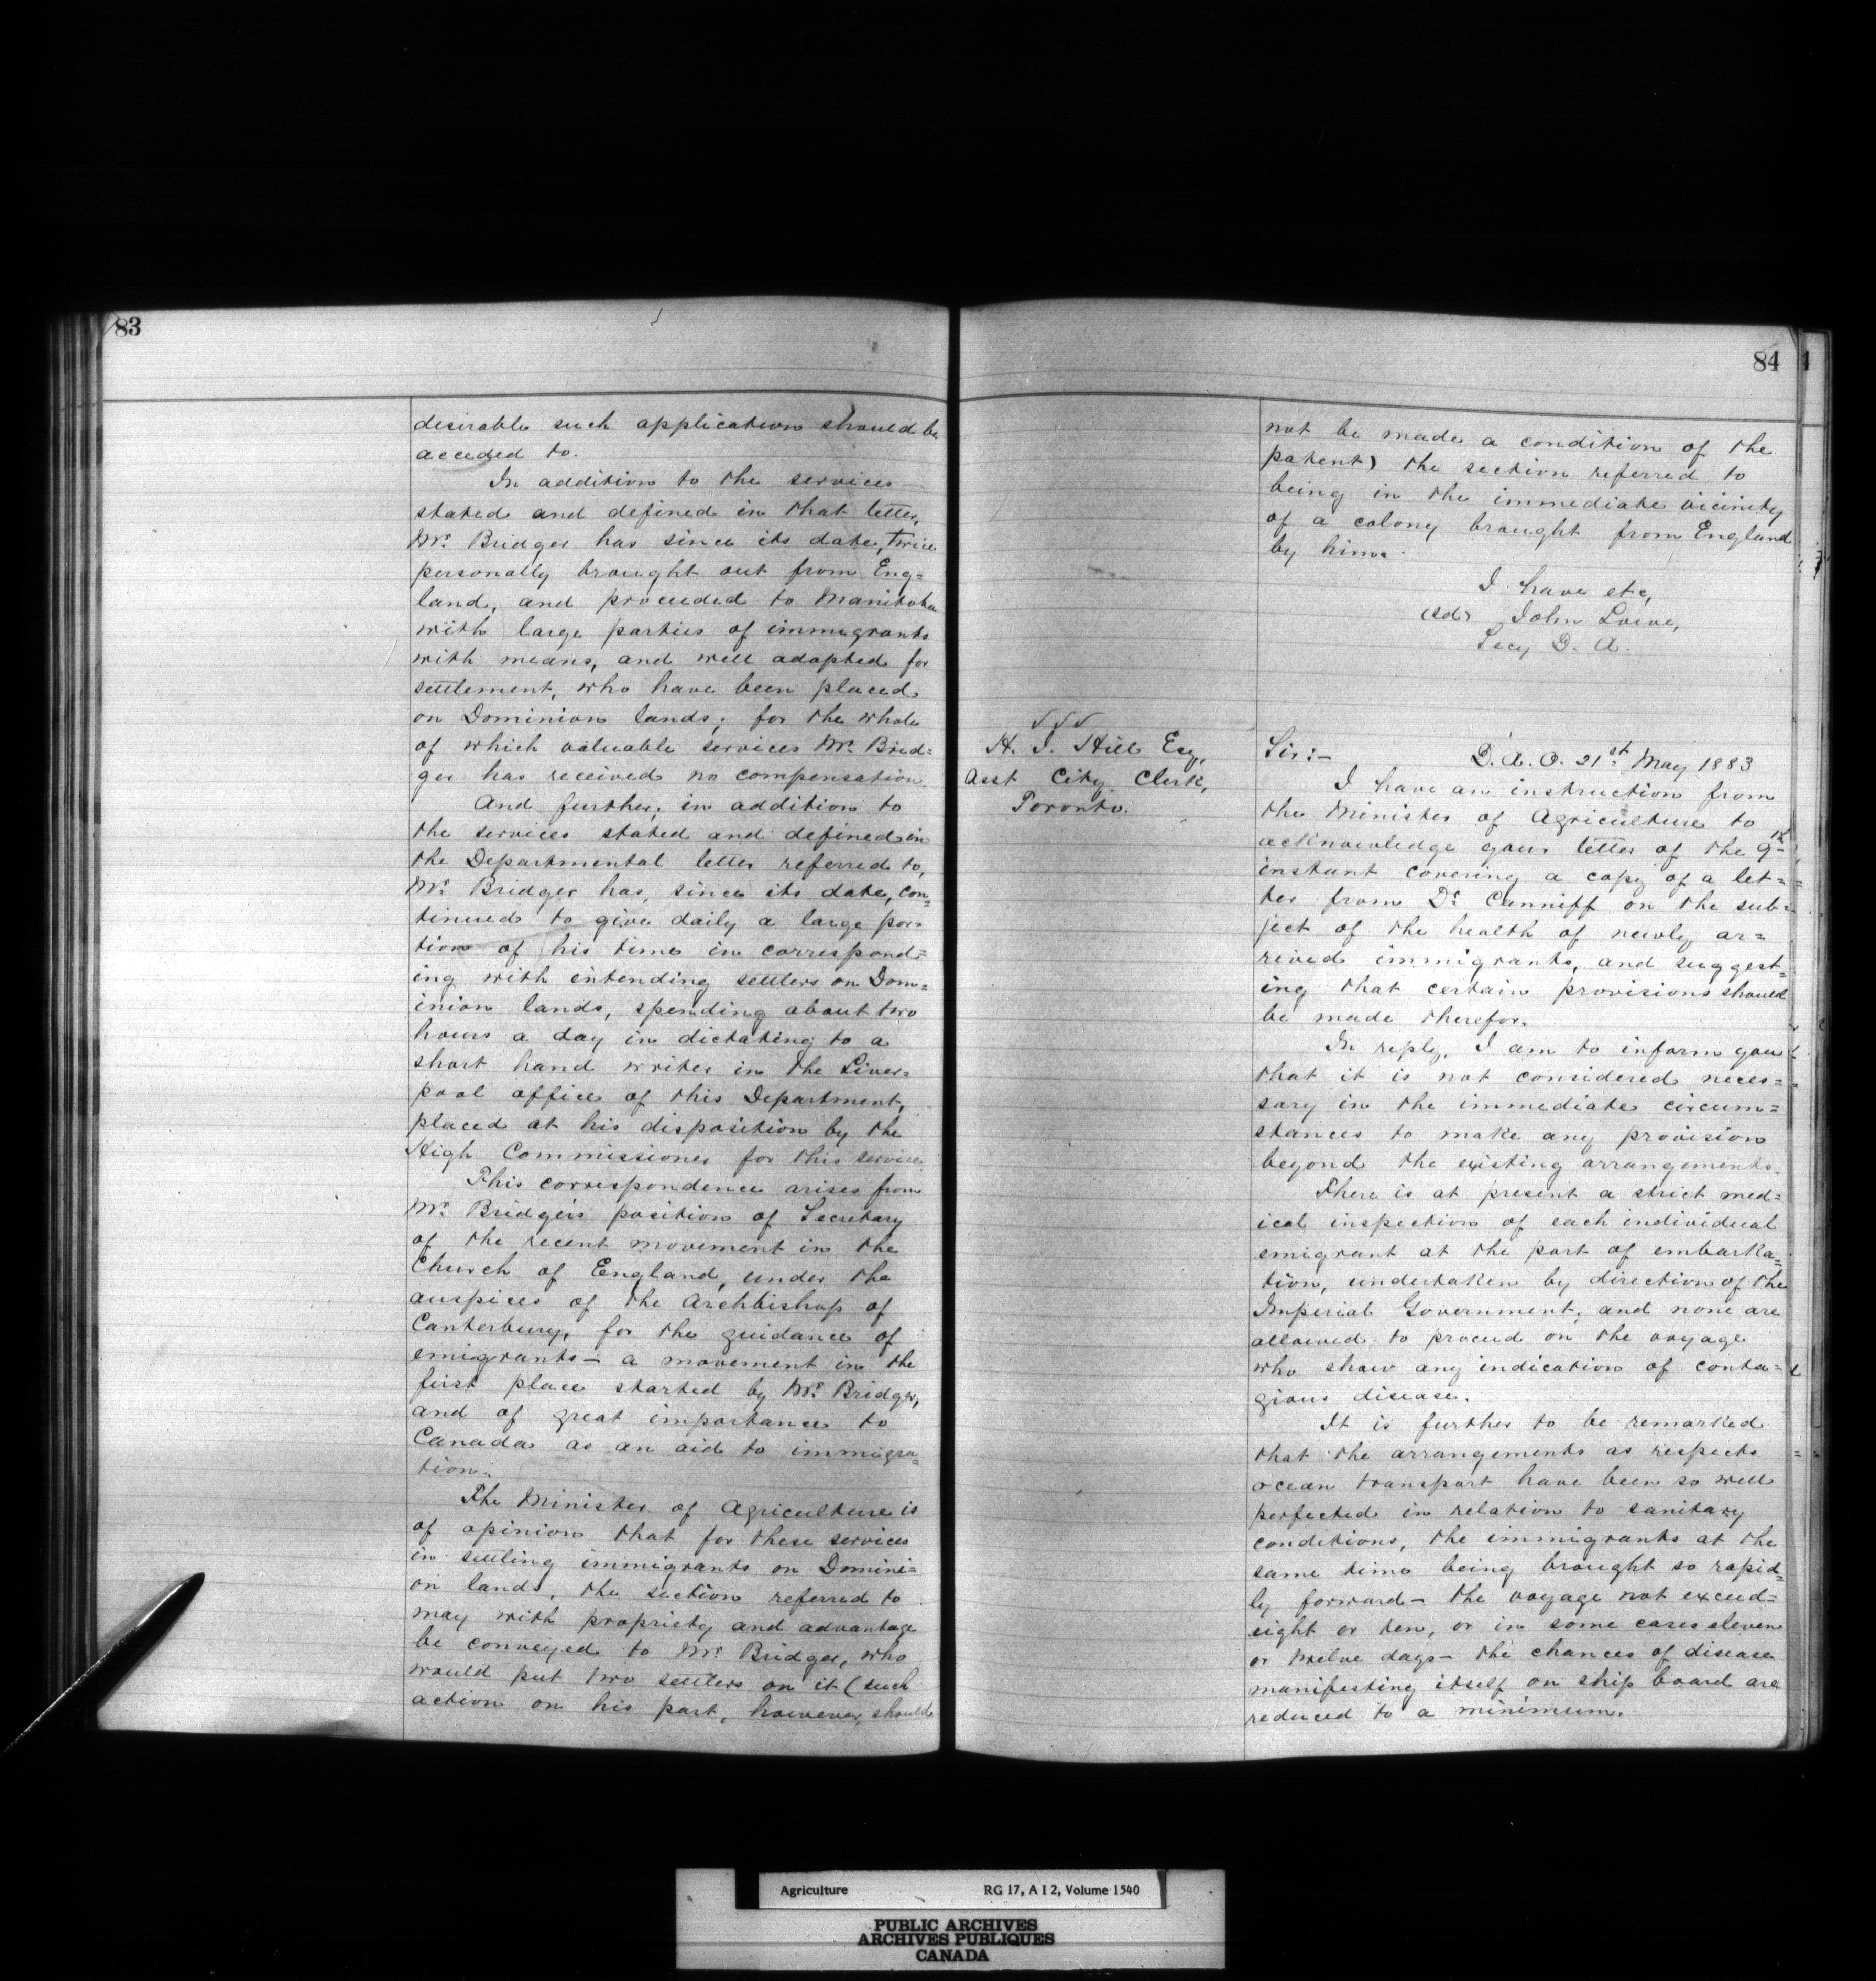 83
desirable such application should be
acceded to.
In addition to the services
stated and defined in that letter,
Mr. Bridger has since its date, twice
personally brought out from Eng=
land, and proceeded to Manitoba
with large parties of immigrants
with means, and well adapted for
settlement, who have been placed
on Dominion lands; for the whole
of which valuable services Mr. Brid=
ger has received no compensation.
And further, in addition to
the services stated and defined in
the Departmental letter referred to,
Mr. Bridger has, since its date, con=
tinued to give daily a large por=
tion of his time in correspond=
ing with intending settlers on Dom=
inion lands, spending about two
hours a day in dictating to a
short hand writer in the Liver=
pool office of this Department,
placed at his disposition by the
High Commissioner for this service
This correspondence arises from
Mr. Bridger's position of Secretary
of the recent movement in the
Church of England, under the
auspices of the Archbishop of
Canterbury, for the guidance of
emigrants – a movement in the
first place started by Mr. Bridger,
and of great importance to
Canada as an aid to immigra=
tion.
The Minister of Agriculture is
of opinion that for these services
in settling immigrants on Domini=
on lands, the section referred to
may with propriety and advantage
be conveyed to Mr. Bridger, who
would put two settlers on it (such
action on his part, however, should
84
not be made a condition of the
patent) the section referred to
being in the immediate vicinity
of a colony brought from England
by him.
I have etc,
(sd) John Lowe,
Secy D. A.
H. J. Hill Esq,
Asst City Clerk,
Toronto.
Sir:– D. A. O. 21st May 1883
I have an instruction from
the Minister of Agriculture to
acknowledge your letter of the 9th
instant covering a copy of a let=
ter from Dr. Canniff on the sub=
ject of the health of newly ar=
rived immigrants, and suggest=
ing that certain provisions should
be made therefor.
In reply, I am to inform you
that it is not considered neces=
sary in the immediate circum=
stances to make any provision
beyond the existing arrangements.
There is at present a strict med=
ical inspection of each individual
emigrant at the port of embarka=
tion, undertaken by direction of the
Imperial Government; and none are
allowed to proceed on the voyage
who show any indication of conta=
gious disease.
It is further to be remarked
that the arrangements as respects
ocean transport have been so well
perfected in relation to sanitary
conditions, the immigrants at the
same time being brought so rapid=
ly forward – the voyage not exceed=
eight or ten, or in some cases eleven
or twelve days – the chances of disease
manifesting itself on ship board are
reduced to a minimum.
Agriculture RG 17, A I 2, Volume 1540
PUBLIC ARCHIVES
ARCHIVES PUBLIQUES
CANADA